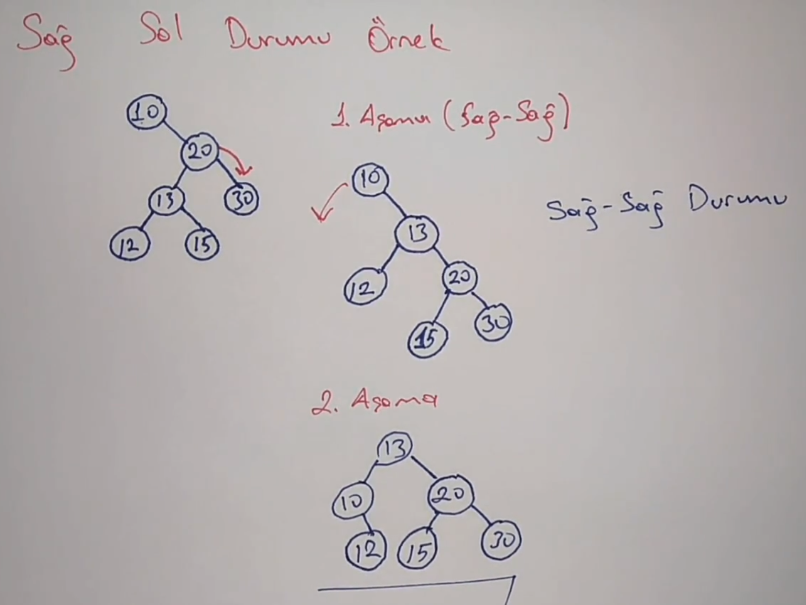 Sağ Sol Durumu Örnek
10
20
13
30
12
15
1. Aşama (Sağ-Sağ)
10
13
12
20
15
30
Sağ-Sağ Durumu
2. Aşama
13
10
20
12
15
30